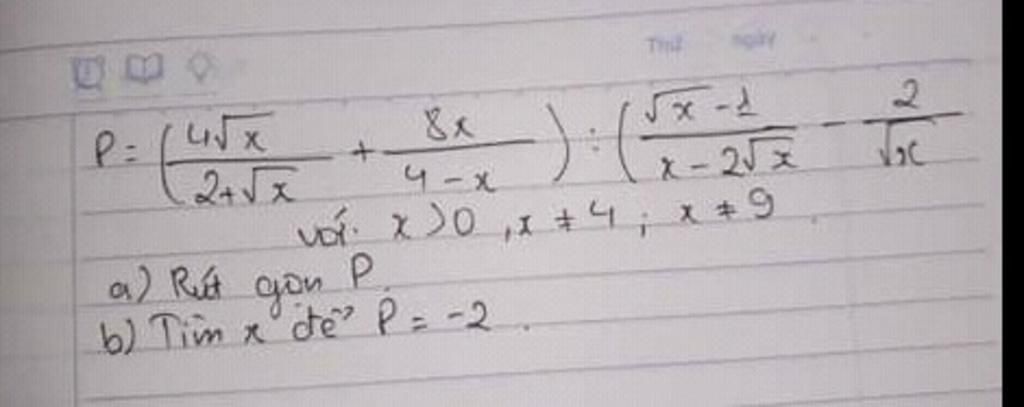 Thứ ngày
P = (4√x / 2+√x + 8x / 4-x) : (√x-1 / x-2√x - 2 / √x
với x>0, x≠4; x≠9
a) Rút gọn P.
b) Tìm x để P = -2.